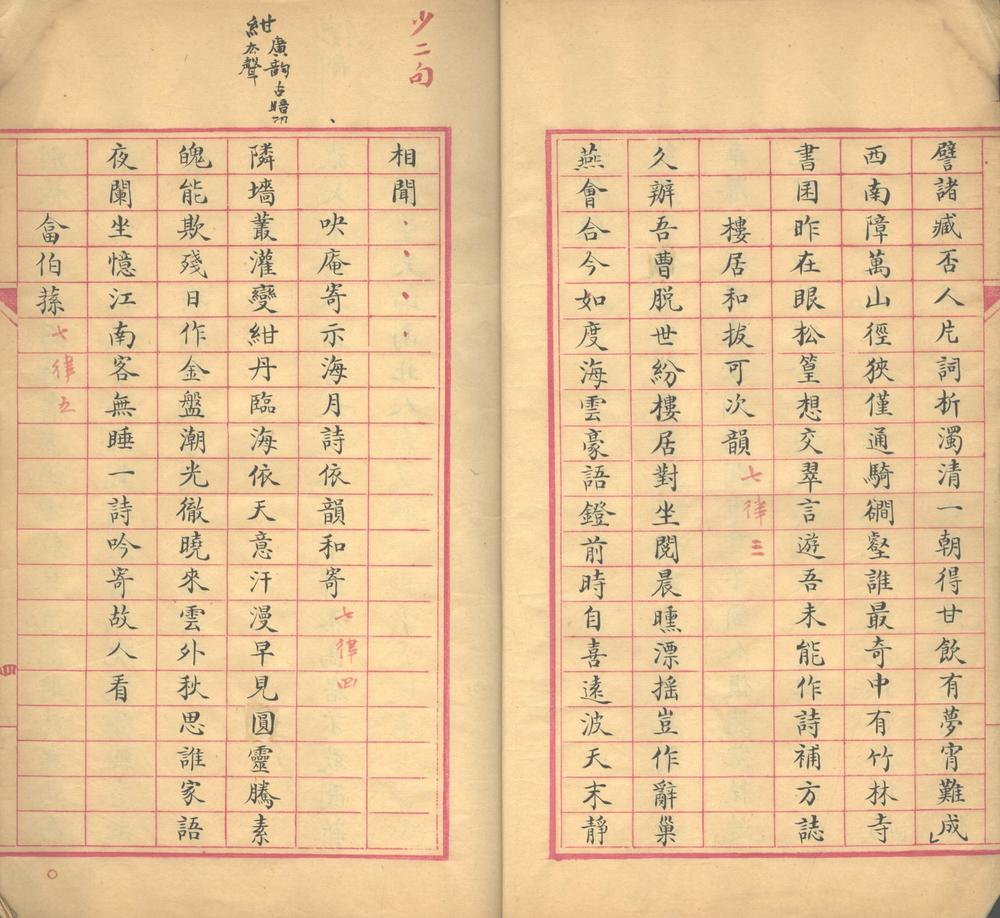 譬諸臧否人片詞折濁清一朝得甘飲有夢宵難成
西南障萬山徑狹僅通騎磵壑誰最奇中有竹林寺
書囷昨在眼松篁想交翠言遊吾未能作詩補方誌
樓居和拔可次韻
七律三
久辦吾曹脱世紛樓居對坐閱晨曛漂搖豈作辭巢
燕會合今如度海雲豪語鐙前時自喜遠波天末靜
少二句
相聞
吷庵寄示海月詩依韻和寄
七律四
紺廣韵古暗切
紺太聲
隣墻叢灌變紺丹臨海依天意汗漫早見圓靈騰素
魄能欺殘日作金盤潮光徹曉來雲外秋思誰家語
夜闌坐憶江南客無睡一詩吟寄故人看
畲伯蓀
七律五
四